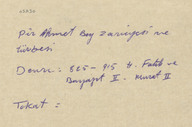 Pir Ahmet Bey zaviyesi ve
türbesi
Devri: 825 - 915 H. Fatih ve
Bayazıt II. Murat II
Tokat :